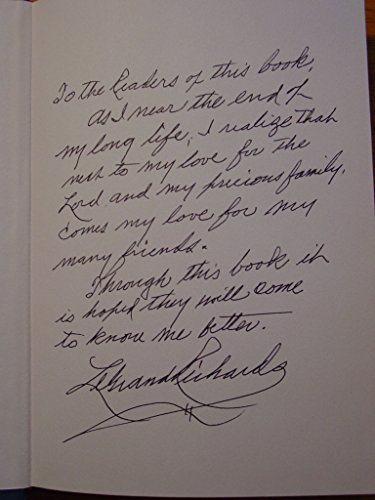 To the Readers of this book,
As I near the end of
my long life, I realize that
next to my love for the
Lord and my precious family,
comes my love for my
many friends.
Through this book it
is hoped they will come
to know me better.
LeGrand Richards